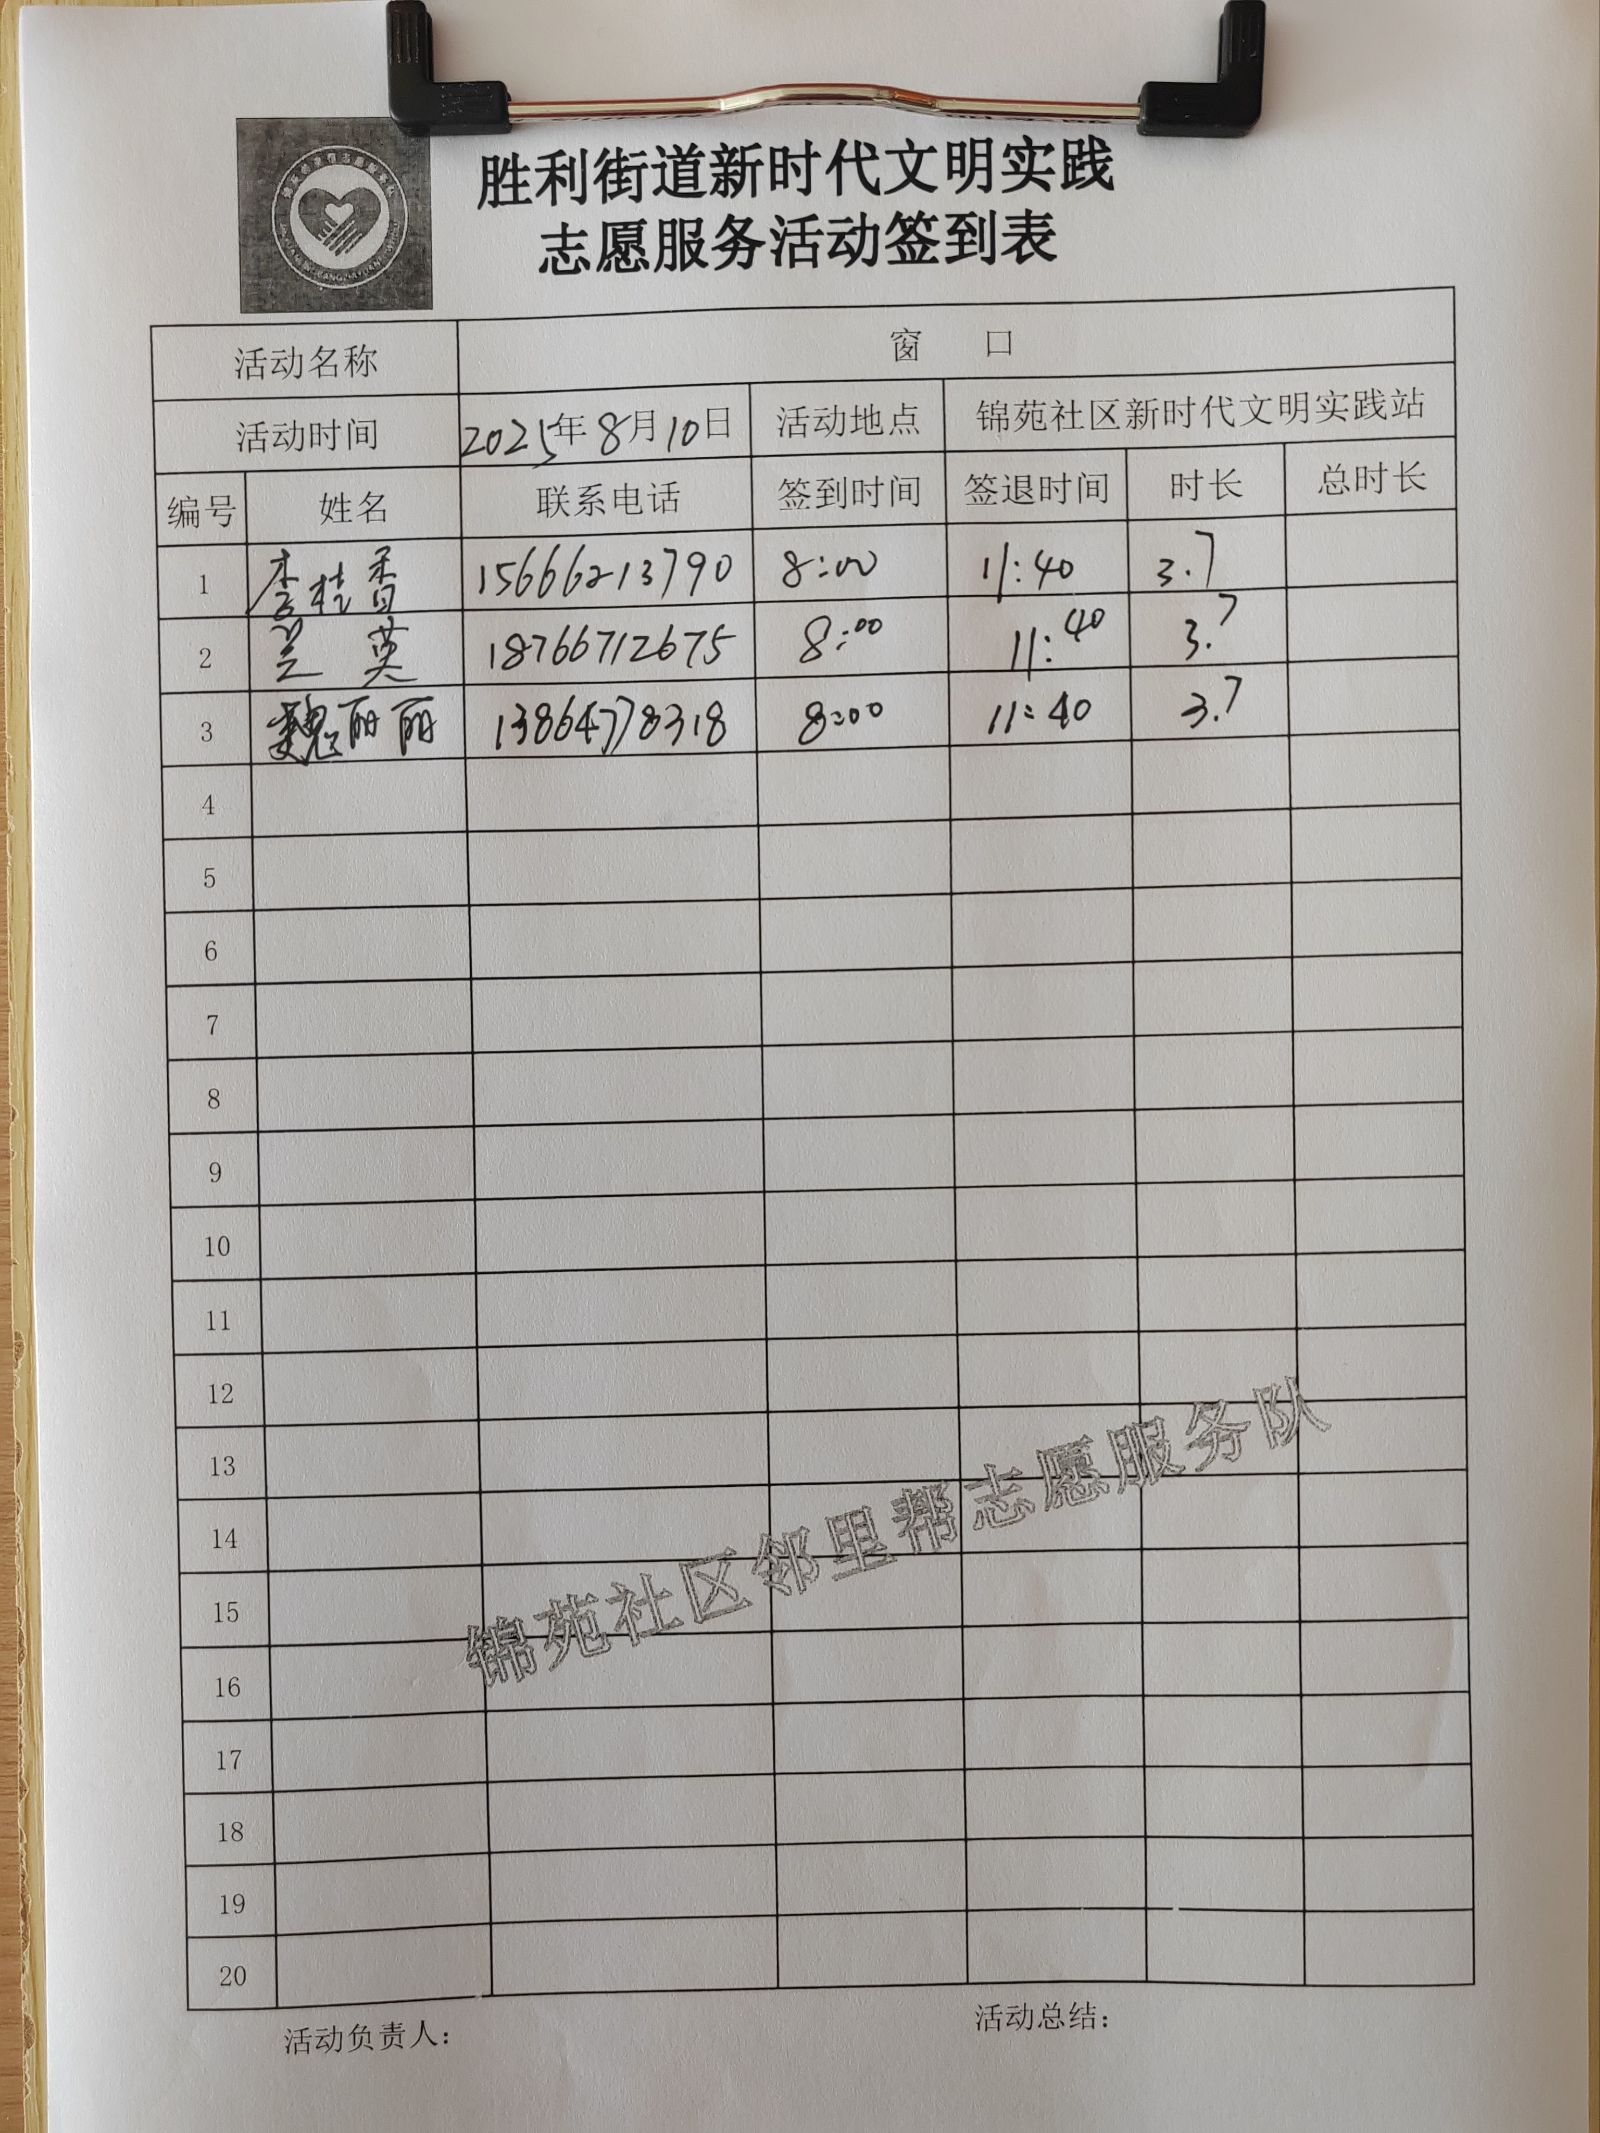 胜利街道新时代文明实践
志愿服务活动签到表
活动名称 窗 口
活动时间 2025年8月10日 活动地点 锦苑社区新时代文明实践站
编号 姓名 联系电话 签到时间 签退时间 时长 总时长
1 李桂香 15666213790 8:00 11:40 3.7
2 英 18766712675 8:00 11:40 3.7
3 魏丽丽 13864778318 8:00 11:40 3.7
4
5
6
7
8
9
10
11
12
13
14
15
16
17
18
19
20
锦苑社区邻里帮志愿服务队
活动负责人: 活动总结: